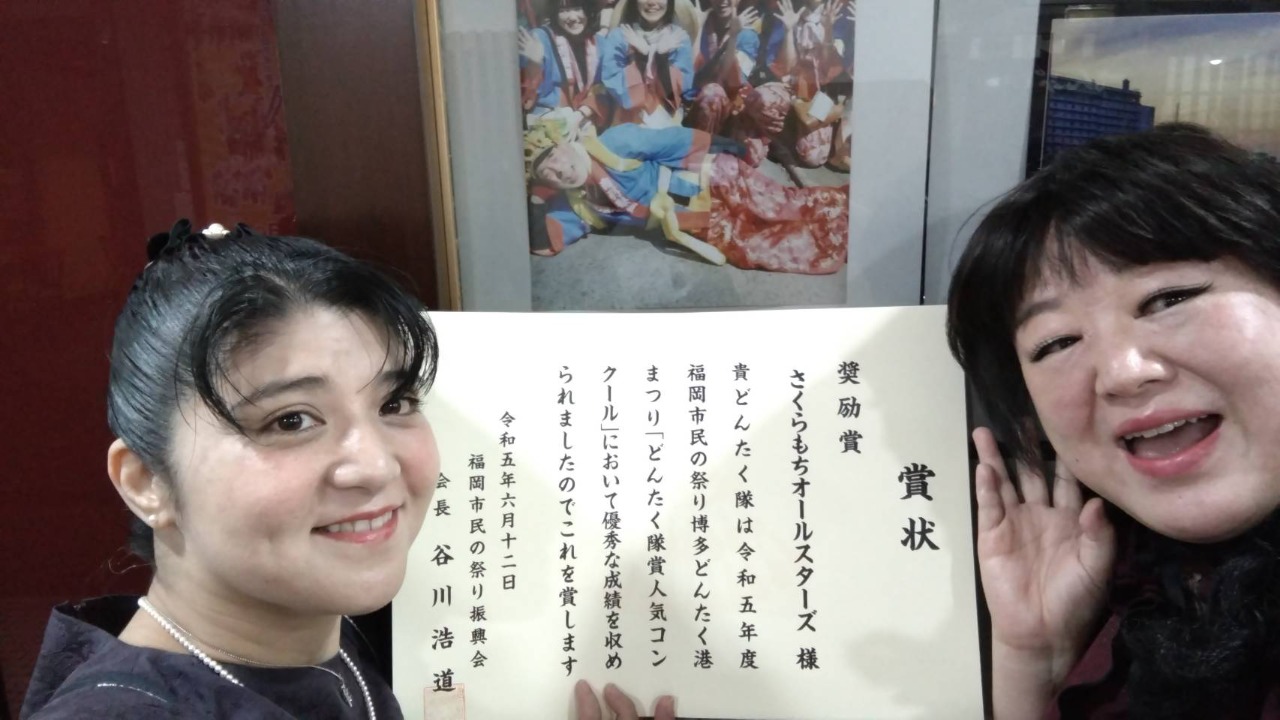 賞状
奨励賞
さくらもちオールスターズ 様
貴どんたく隊は令和五年度
福岡市民の祭り博多どんたく港
まつり「どんたく隊賞人気コン
クール」において優秀な成績を収め
られましたのでこれを賞します
令和五年六月十二日
福岡市民の祭り振興会
会長 谷川浩道